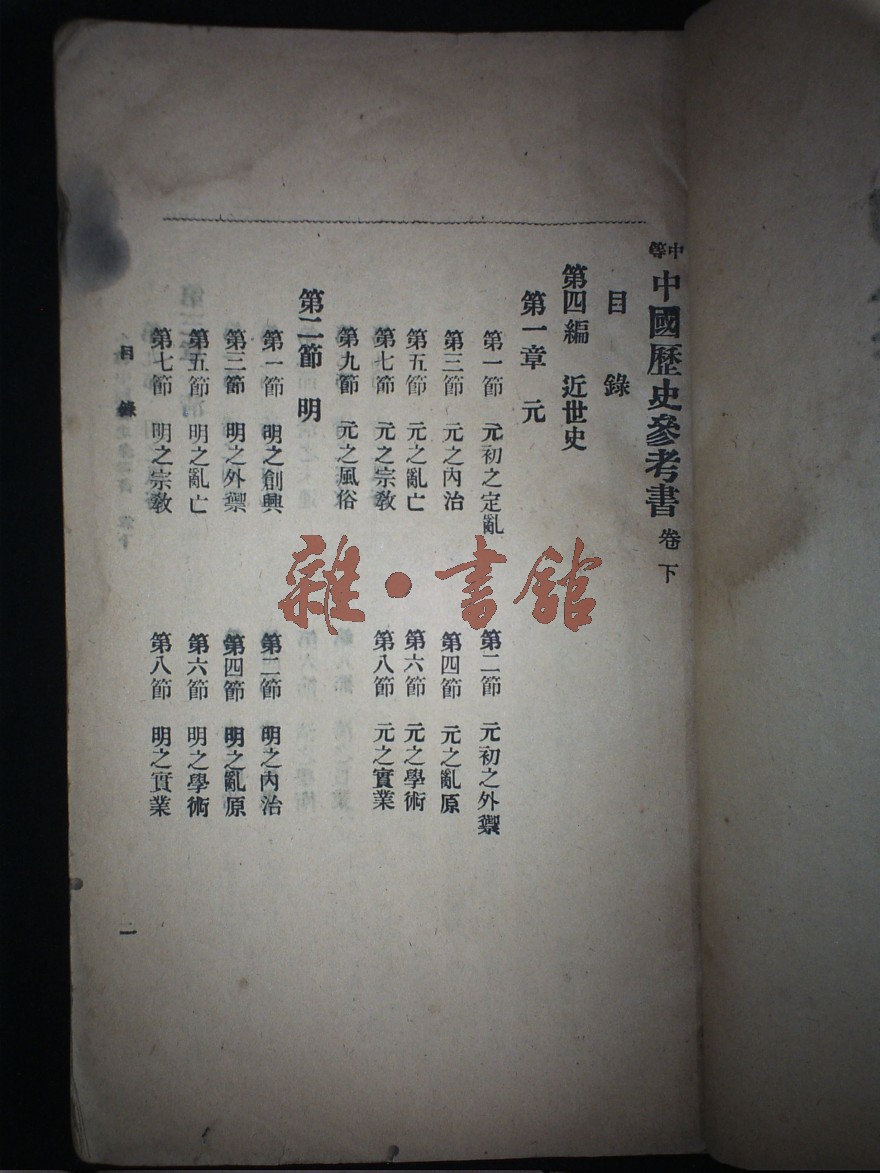 中等 中國歷史參考書 卷下
目錄
第四編 近世史
第一章 元
第一節 元初之定亂 第二節 元初之外禦
第三節 元之內治 第四節 元之亂原
第五節 元之亂亡 第六節 元之學術
第七節 元之宗教 第八節 元之實業
第九節 元之風俗
第二節 明
第一節 明之創興 第二節 明之內治
第三節 明之外禦 第四節 明之亂原
第五節 明之亂亡 第六節 明之學術
第七節 明之宗教 第八節 明之實業
目錄 二
雜·書館